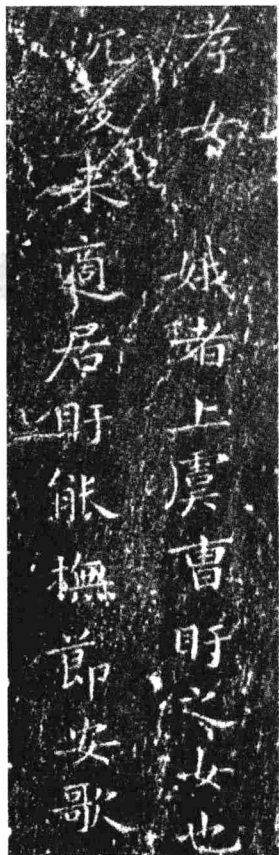 孝女娥者上虞曹盱之女也
沉荒来適居盱能撫節安歌